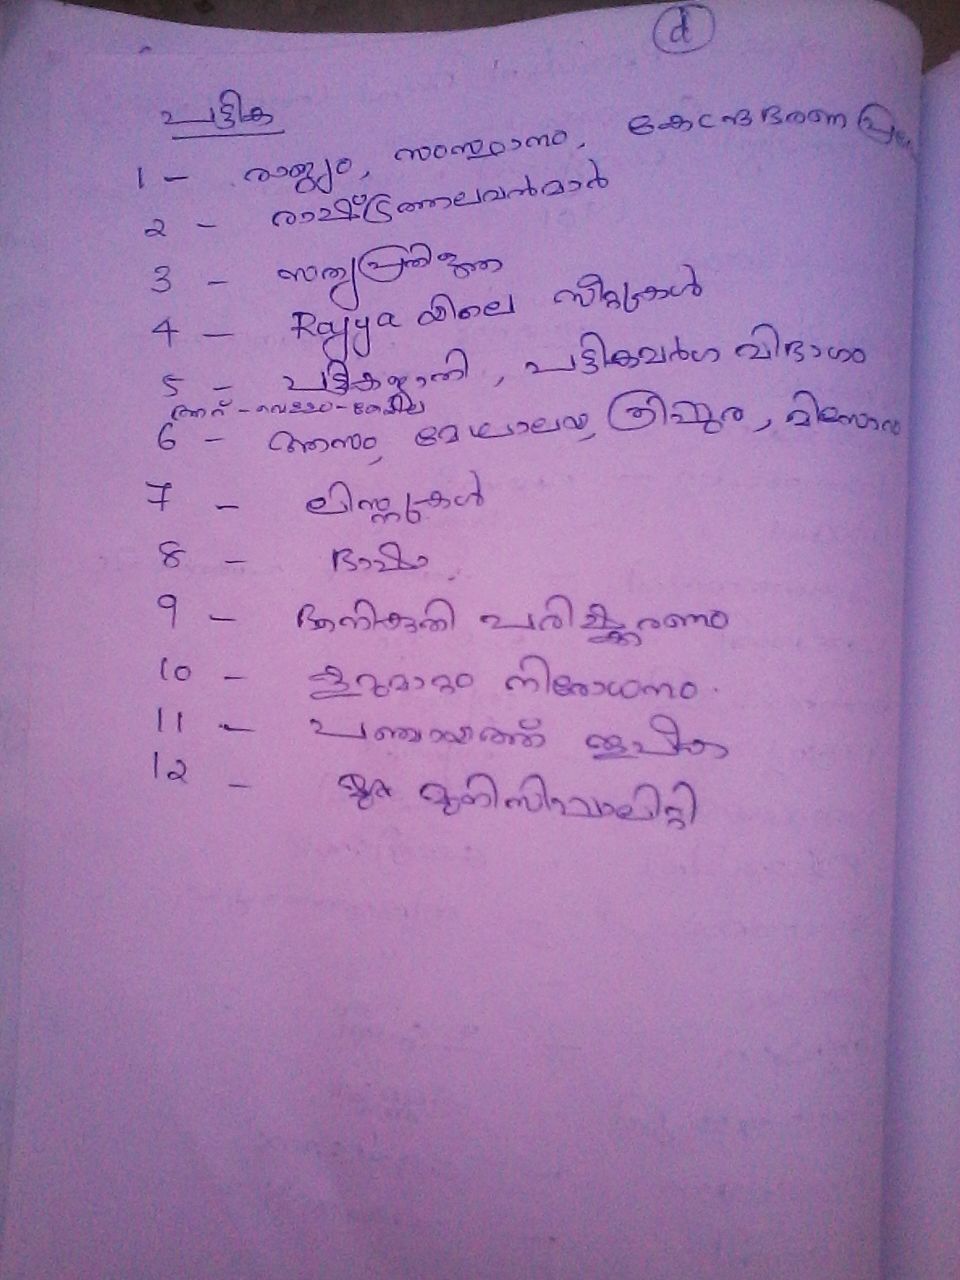 d
പട്ടിക
1 - രാജ്യം, സംസ്ഥാനം, കേന്ദ്രഭരണ
2 - രാഷ്ട്രത്തലവൻമാർ
3 - സത്യപ്രതിജ്ഞ
4 - Rajya യിലെ സീറ്റുകൾ
5 - പട്ടികജാതി, പട്ടികവർഗ വിഭാഗം
6 - അസം, മേഘാലയ, ത്രിപുര, മിസോറ
7 - ലിസ്റ്റുകൾ
8 - ഭാഷ
9 - ഭൂനികുതി പരിഷ്ക്കരണം
10 - കൂറുമാറ്റം നിരോധനം.
11 - പഞ്ചായത്ത്
12 - മുനിസിപ്പാലിറ്റി